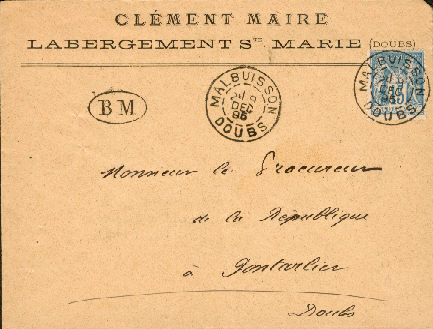 CLÉMENT MAIRE
LABERGEMENT STE MARIE (DOUBS)
MALBUISSON
DEC
95
DOUBS
MALBUISSON
DEC
95
DOUBS
BM
Monsieur le Procureur
de la République
à Pontarlier
Doubs